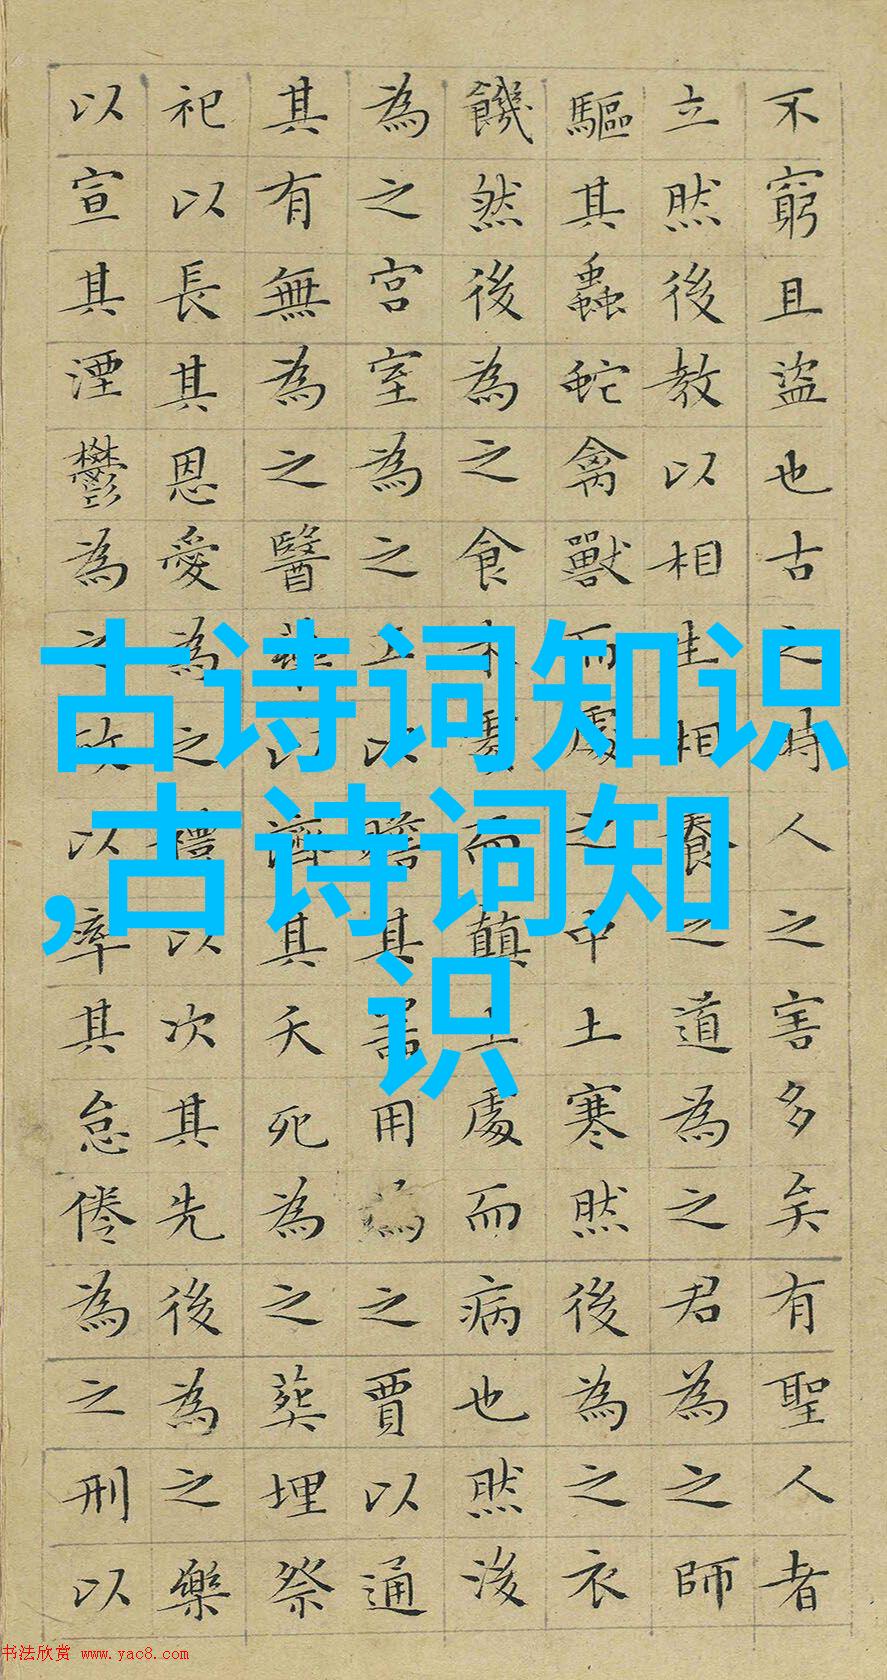 不窮且盜也古之時人之害多矣有聖人者
立然後教以相生相養之道為之君為之師
驅其蟲蛇禽獸而處之中土寒然後為之衣
饑然後為之食木處而顛土處而病也然後
為之宮室為之工以贍其器用為之賈以通
其有無為之醫藥以濟其夭死為之葬埋祭
祀以長其恩愛為之禮以次其先後為之樂
以宣其湮鬱為之政以率其怠倦為之刑以
古诗词知识
,古诗词知
识
书法欣赏 www.yac8.com